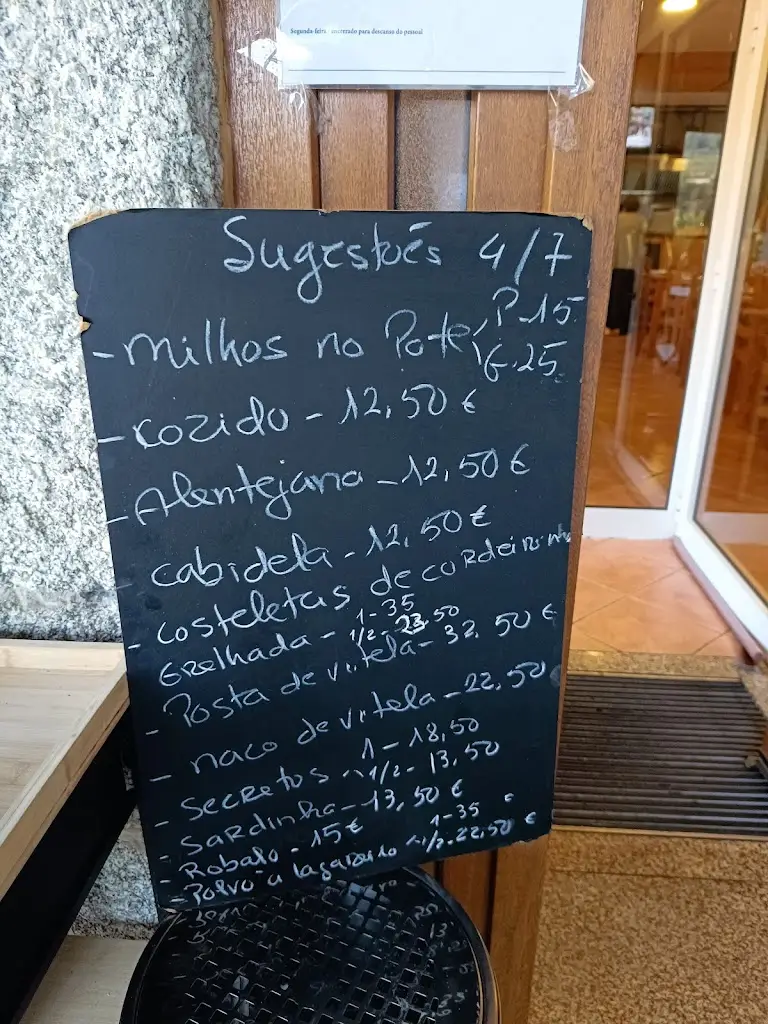 Segunda-feira encerrado para descanso do pessoal
Sugestões 4/7
- milhos no Pote P. 15
G. 25
- cozido - 12,50 €
- Alentejana - 12,50 €
- cabidela - 12,50 €
- costeletas de cordeirinho
Grelhada - 1 - 35
1/2 - 23.50
- Posta de vitela - 32.50 €
- naco de vitela - 22,50
- Secretos 1 - 18,50
1/2 - 13,50
- Sardinha - 13,50 €
- Robalo - 15 €
- Polvo à lagareiro 1 - 35
1/2 - 22,50 €